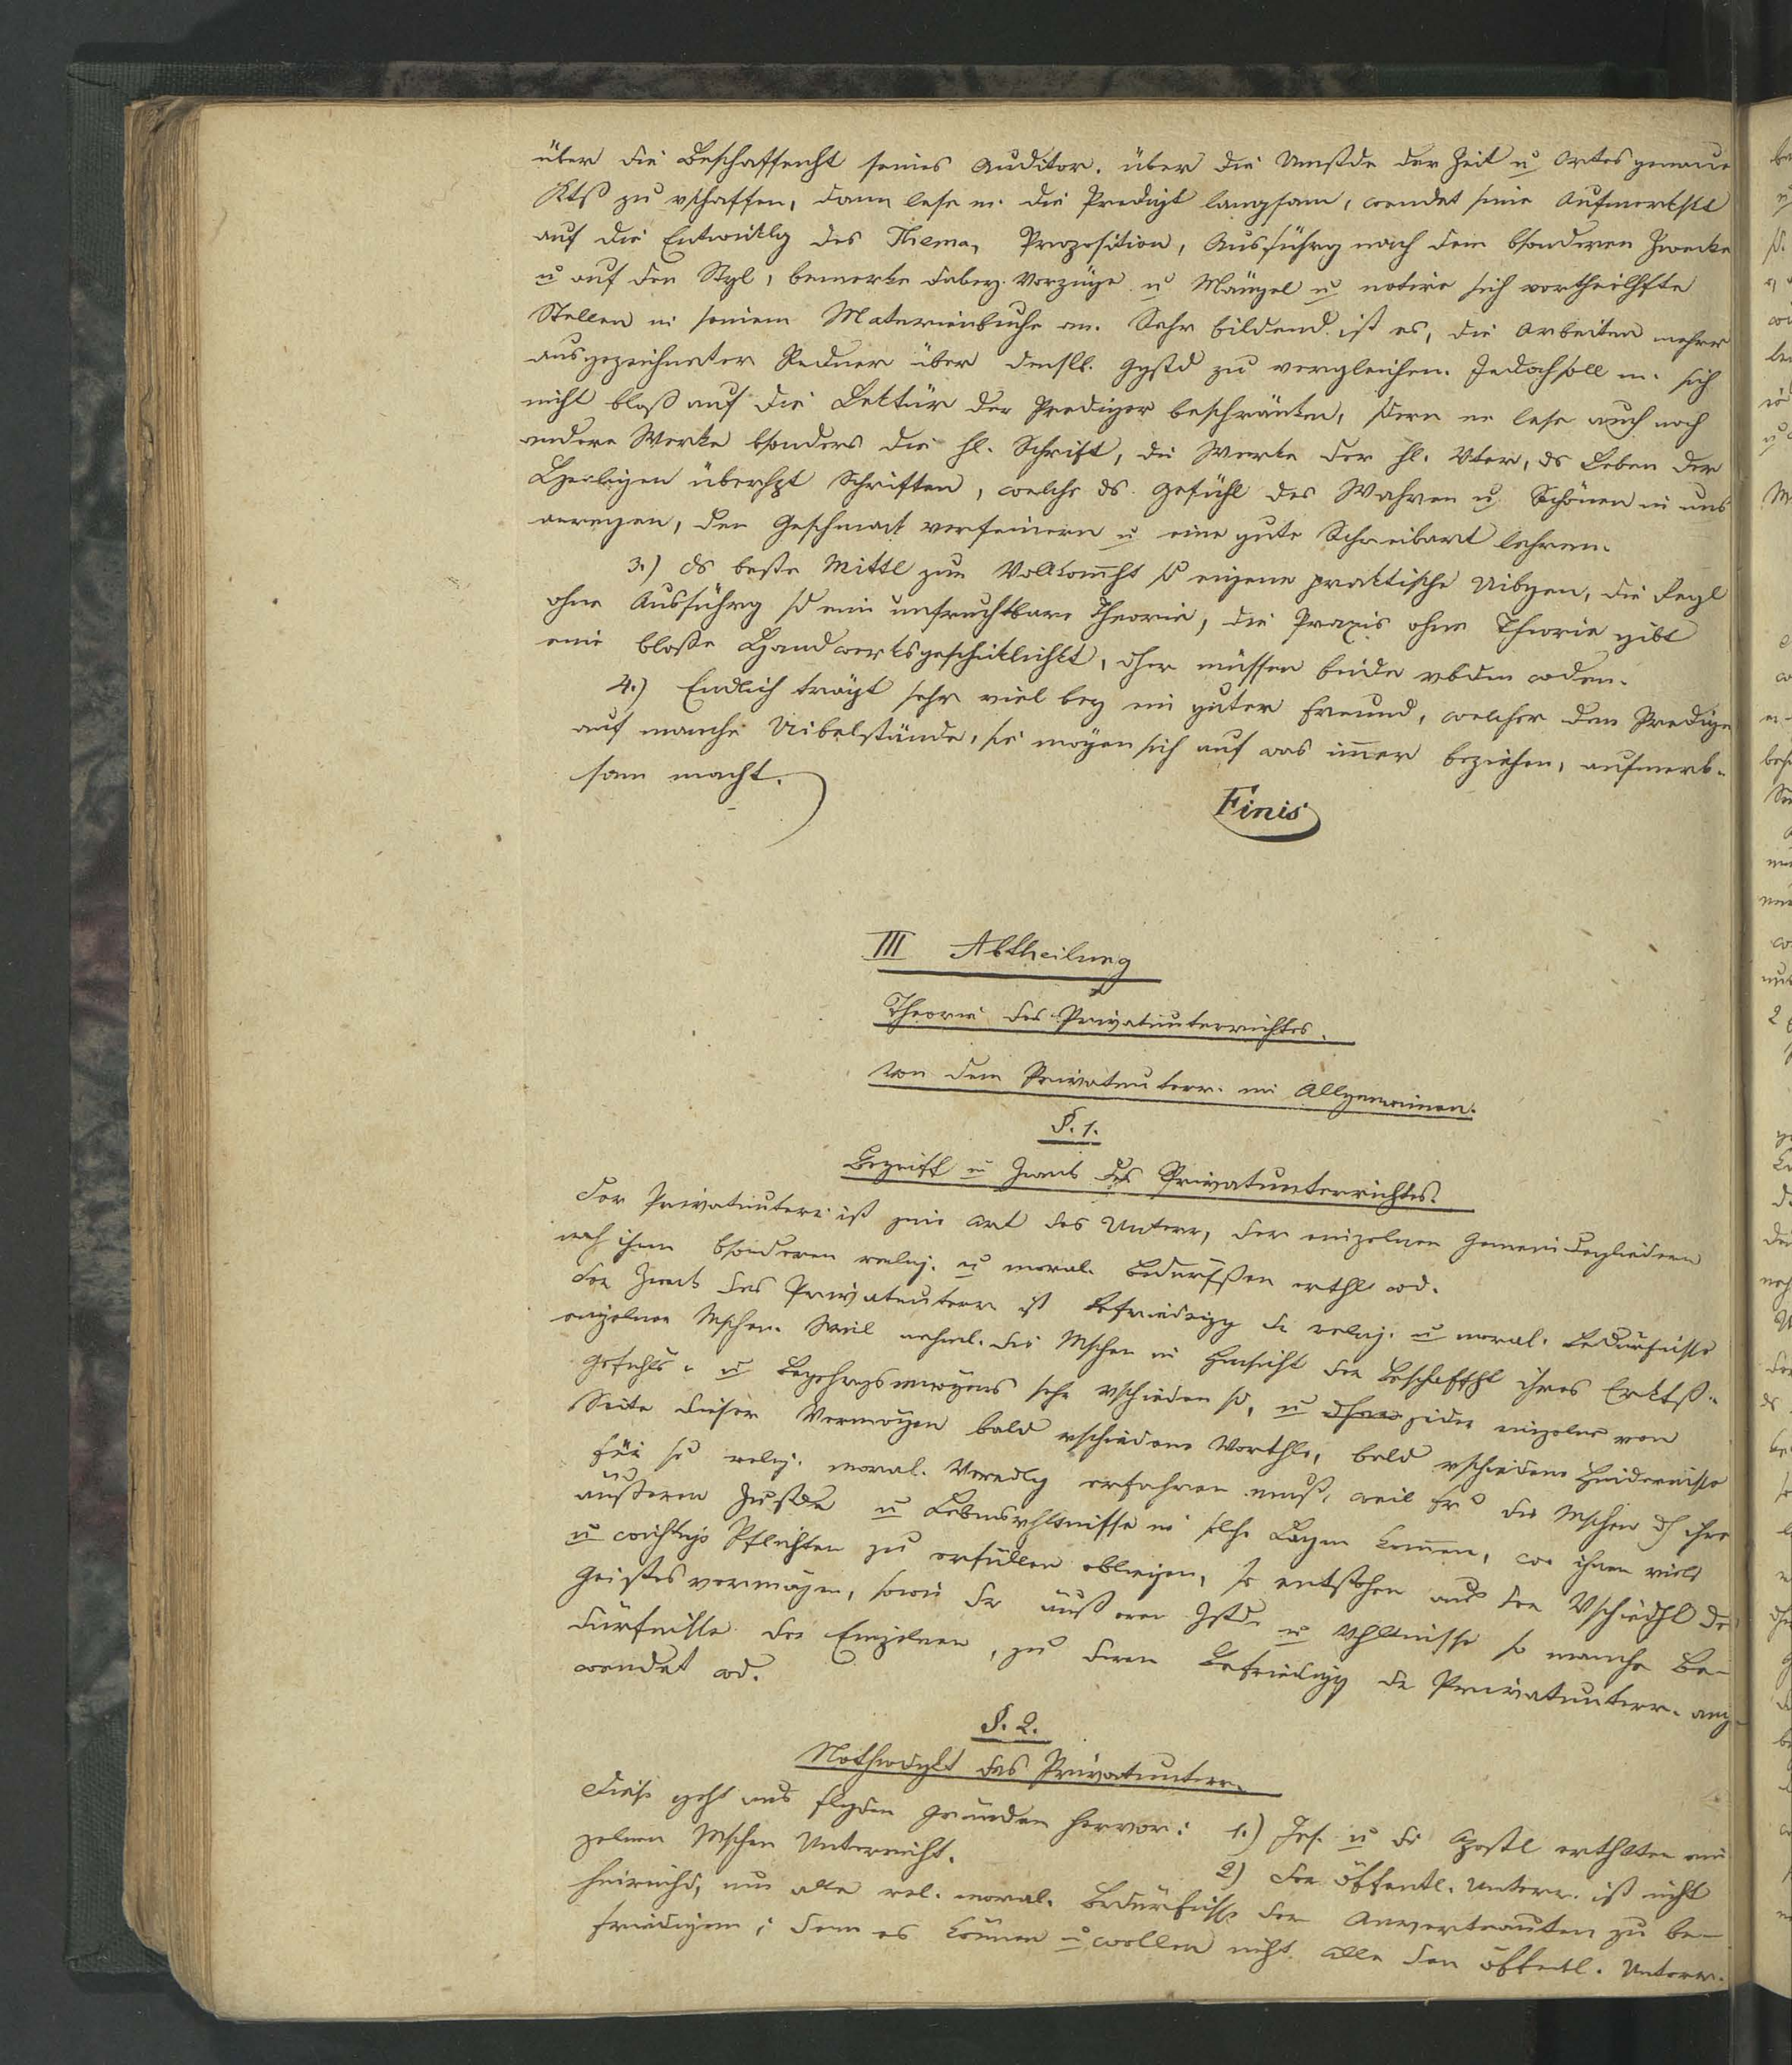 über die Beschaffenht seines Auditor. über die Umstde der Zeit u Ortes genaue
Ktß zu vschaffen, dann lese m. die Predigt langsam, wendet seine Aufmerkskt
auf die Entwicklg des Thema, Proposition, Ausführg nach dem bsonderen Zwecke
u auf den Styl, bemerke dabey Vorzüge u Mängel u notire sich vortheilhfte
Stellen in seinem Materienbuche an. Sehr bildend ist es, die Arbeiten mehrer
ausgezeichneter Redner über denslb. Ggstd zu vergleichen. Jedoch soll m. sich
nicht bloß auf die Lektür der Prediger beschränken, sdern er lese auch noch
andere Werke bsonders die hl. Schrift, die Werke der hl. Väter, ds Leben der
Heiligen überhpt Schriften, welche ds Gefühl des Wahren u Schönen in uns
anregen, den Geschmack verfeinern u eine gute Schreibart lehren.
3.) ds beste Mittl zur Vollkom̅ht sd eigene praktische Uibgen, die Regl
ohne Ausführg sd eine unfruchtbare Theorie, die Praxis ohne Theorie gibt
eine bloße Handwerksgeschicklichkt, dher müssen beide vbden wden.
4.) Endlich trägt sehr viel bey ein guter Freund, welcher den Predige
auf manche Uibelstände, sie mögen sich auf was im̅er beziehen, aufmerk-
sam macht.
Finis
III Abtheilung
Theorie des Privatunterrichtes.
Von dem Privatunterr. im Allgemeinen.
§. 1.
Begriff u Zweck des Privatunterrichtes.
Der Privatunterr. ist jene Art des Unterr, der einzelnen Gemeindegliedern
nach ihren bsonderen relig. u moral. Bedürfßen erthlt wd.
Der Zweck des Privatunterr. ist Befriedigg der relig. u moral. Bedürfnisse
einzelner Mschen. Weil nehml. die Mschen in Hinsicht der Beschaffht ihres Erktß-
Gefühls- u Begehrgsvermögens sehr vschieden sd, u jeder einzelne von
Seite dieser Vermögen bald vschiedene Vorthle, bald vschiedene Hindernisse
für se relig. moral. Veredlg erfahren muß, weil die Mschen dch ihre
äußeren Zustde u Lebensvhltnisse in solche Lagen kom̅en, wo ihnen viele
u wichtige Pflichten zu erfüllen obliegen, so entstehen aus der Vschiedht des
Geistesvermögens, sowie der äußeren Zstde u Vhltnisse so manche Be-
dürfnisse der Einzelnen, zu deren Befriedigg der Privatunterr. ang-
wendet wd.
§. 2.
Nothwdgkt des Privatunterr.
Diese geht aus flgden Gründen hervor: 1.) Jes. u die Apostl erthlten ein
zelnen Mschen Unterricht.
2) Der öffentl. Unterr. ist nicht
hinreichd, um alle rel. moral. Bedürfnisse der Anvertrauten zu be-
friedigen; denn es können u wollen nicht alle den öffentl. Unterr.